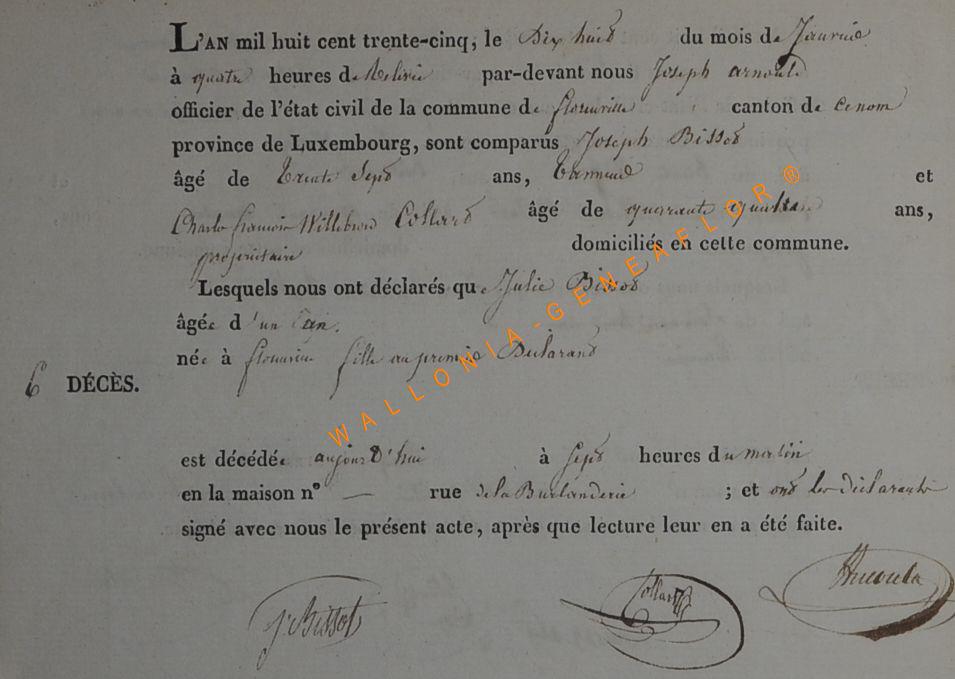 L'AN mil huit cent trente-cinq, le Dix huit du mois de Janvier
à quatre heures de Relevée par-devant nous Joseph arnould
officier de l'état civil de la commune de florenville canton de
province de Luxembourg, sont comparus Joseph Bissot
âgé de Trente Sept ans, Tanneur et
Charles françois Willebrord Collard âgé de quarante quatre ans,
propriétaire domiciliés en cette commune.
Lesquels nous ont déclarés que Julie Bissot
âgée d'un an.
née à fille au premier Déclarant
6 DÉCÈS.
est décédée aujourd'hui à Sept heures du matin
en la maison n° — rue de la ; et ont les déclarants
signé avec nous le présent acte, après que lecture leur en a été faite.
J. Bissot Collard
WALLONIA-GENEAFLOR ®